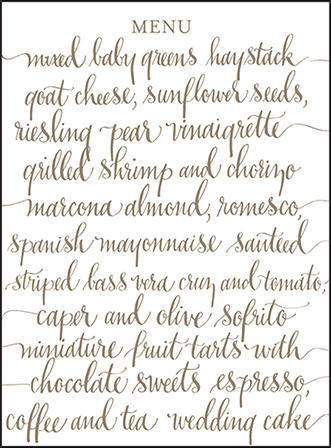 MENU
mixed baby greens haystack
goat cheese, sunflower seeds,
riesling pear vinaigrette
grilled shrimp and chorizo
marcona almond, romesco,
spanish mayonnaise sauteed
striped bass vera cruz and tomato,
caper and olive sofrito
miniature fruit tarts with
chocolate sweets espresso,
coffee and tea wedding cake